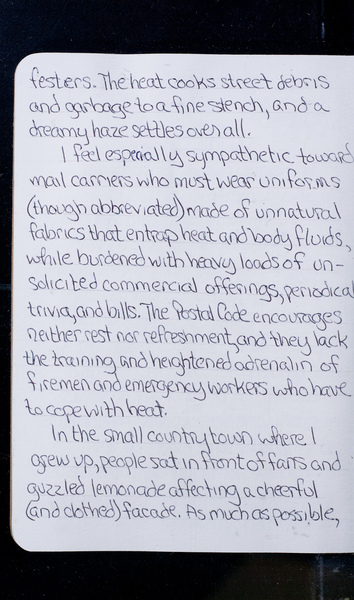 festers. The heat cooks street debris
and garbage to a fine stench, and a
dreamy haze settles over all.
I feel especially sympathetic toward
mail carriers who must wear uniforms
(though abbreviated) made of unnatural
fabrics that entrap heat and body fluids,
while burdened with heavy loads of un-
solicited commercial offerings, periodical
trivia, and bills. The Postal Code encourages
neither rest nor refreshment, and they lack
the training and heightened adrenalin of
firemen and emergency workers who have
to cope with heat.
In the small country town where I
grew up, people sat in front of fans and
guzzled lemonade affecting a cheerful
(and clothed) facade. As much as possible,